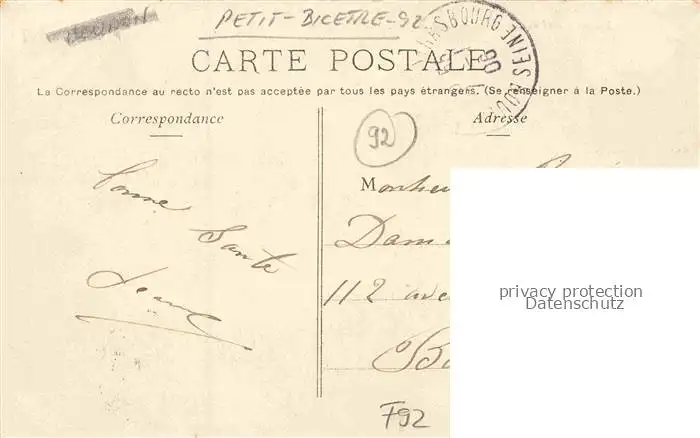 PETIT-BICETRE-92
CARTE POSTALE
La Correspondance au recto n'est pas acceptée par tous les pays étrangers. (Se renseigner à la Poste.)
Correspondance
Adresse
92
Bonne
Santé
M
Dam
112 ave
privacy protection
Datenschutz
F92